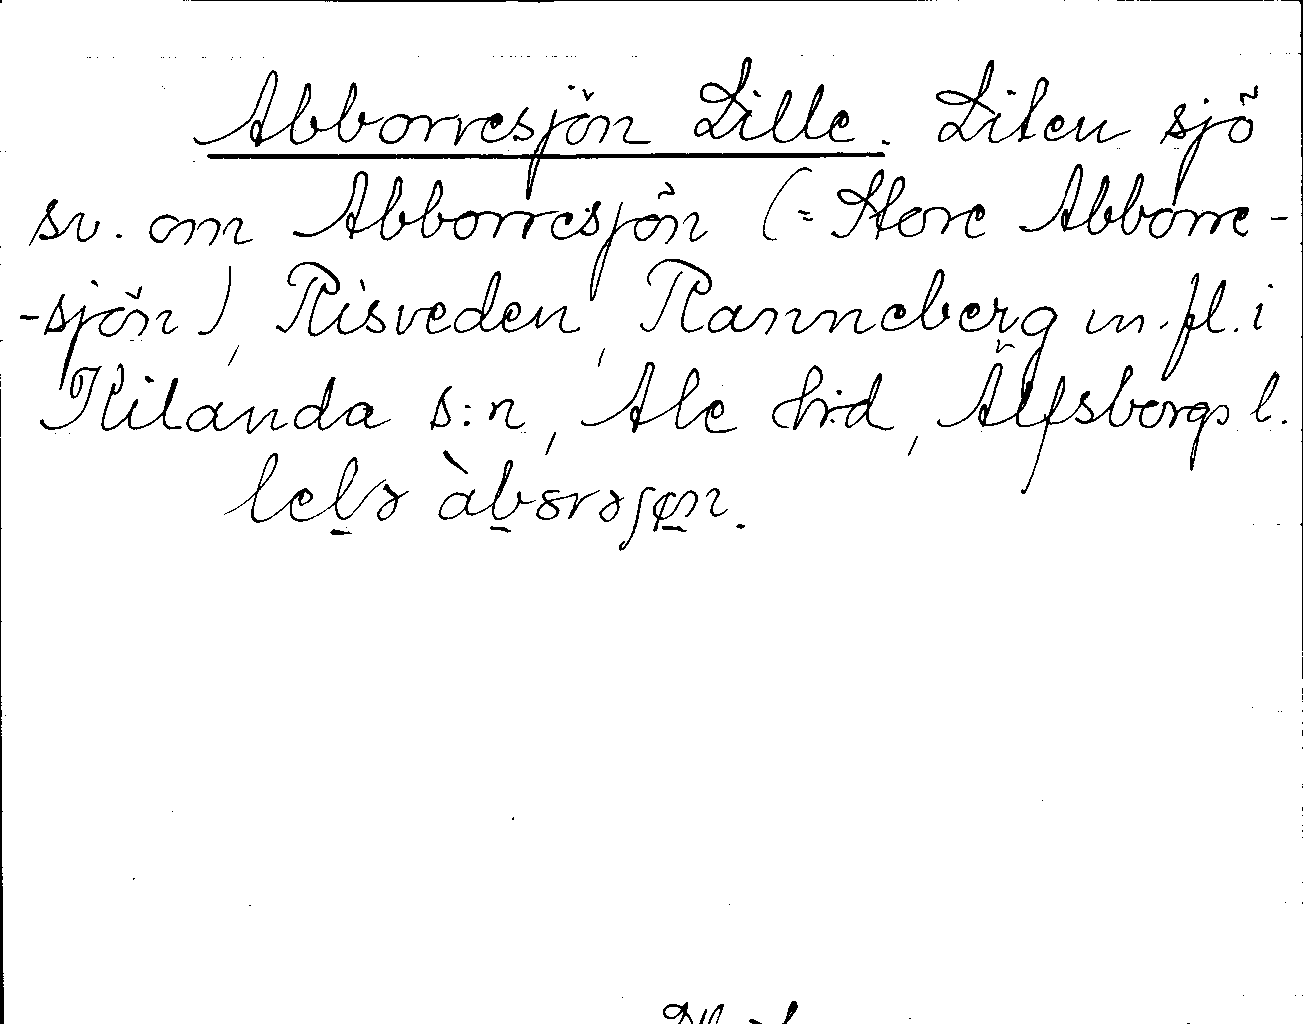 Abborresjön Lille. Liten sjö
sv. om Abborresjön (= Store Abborre-
-sjön), Risveden, Ranneberg m.fl. i
Kilanda s:n, Ale h:d, Älfsborgs l.